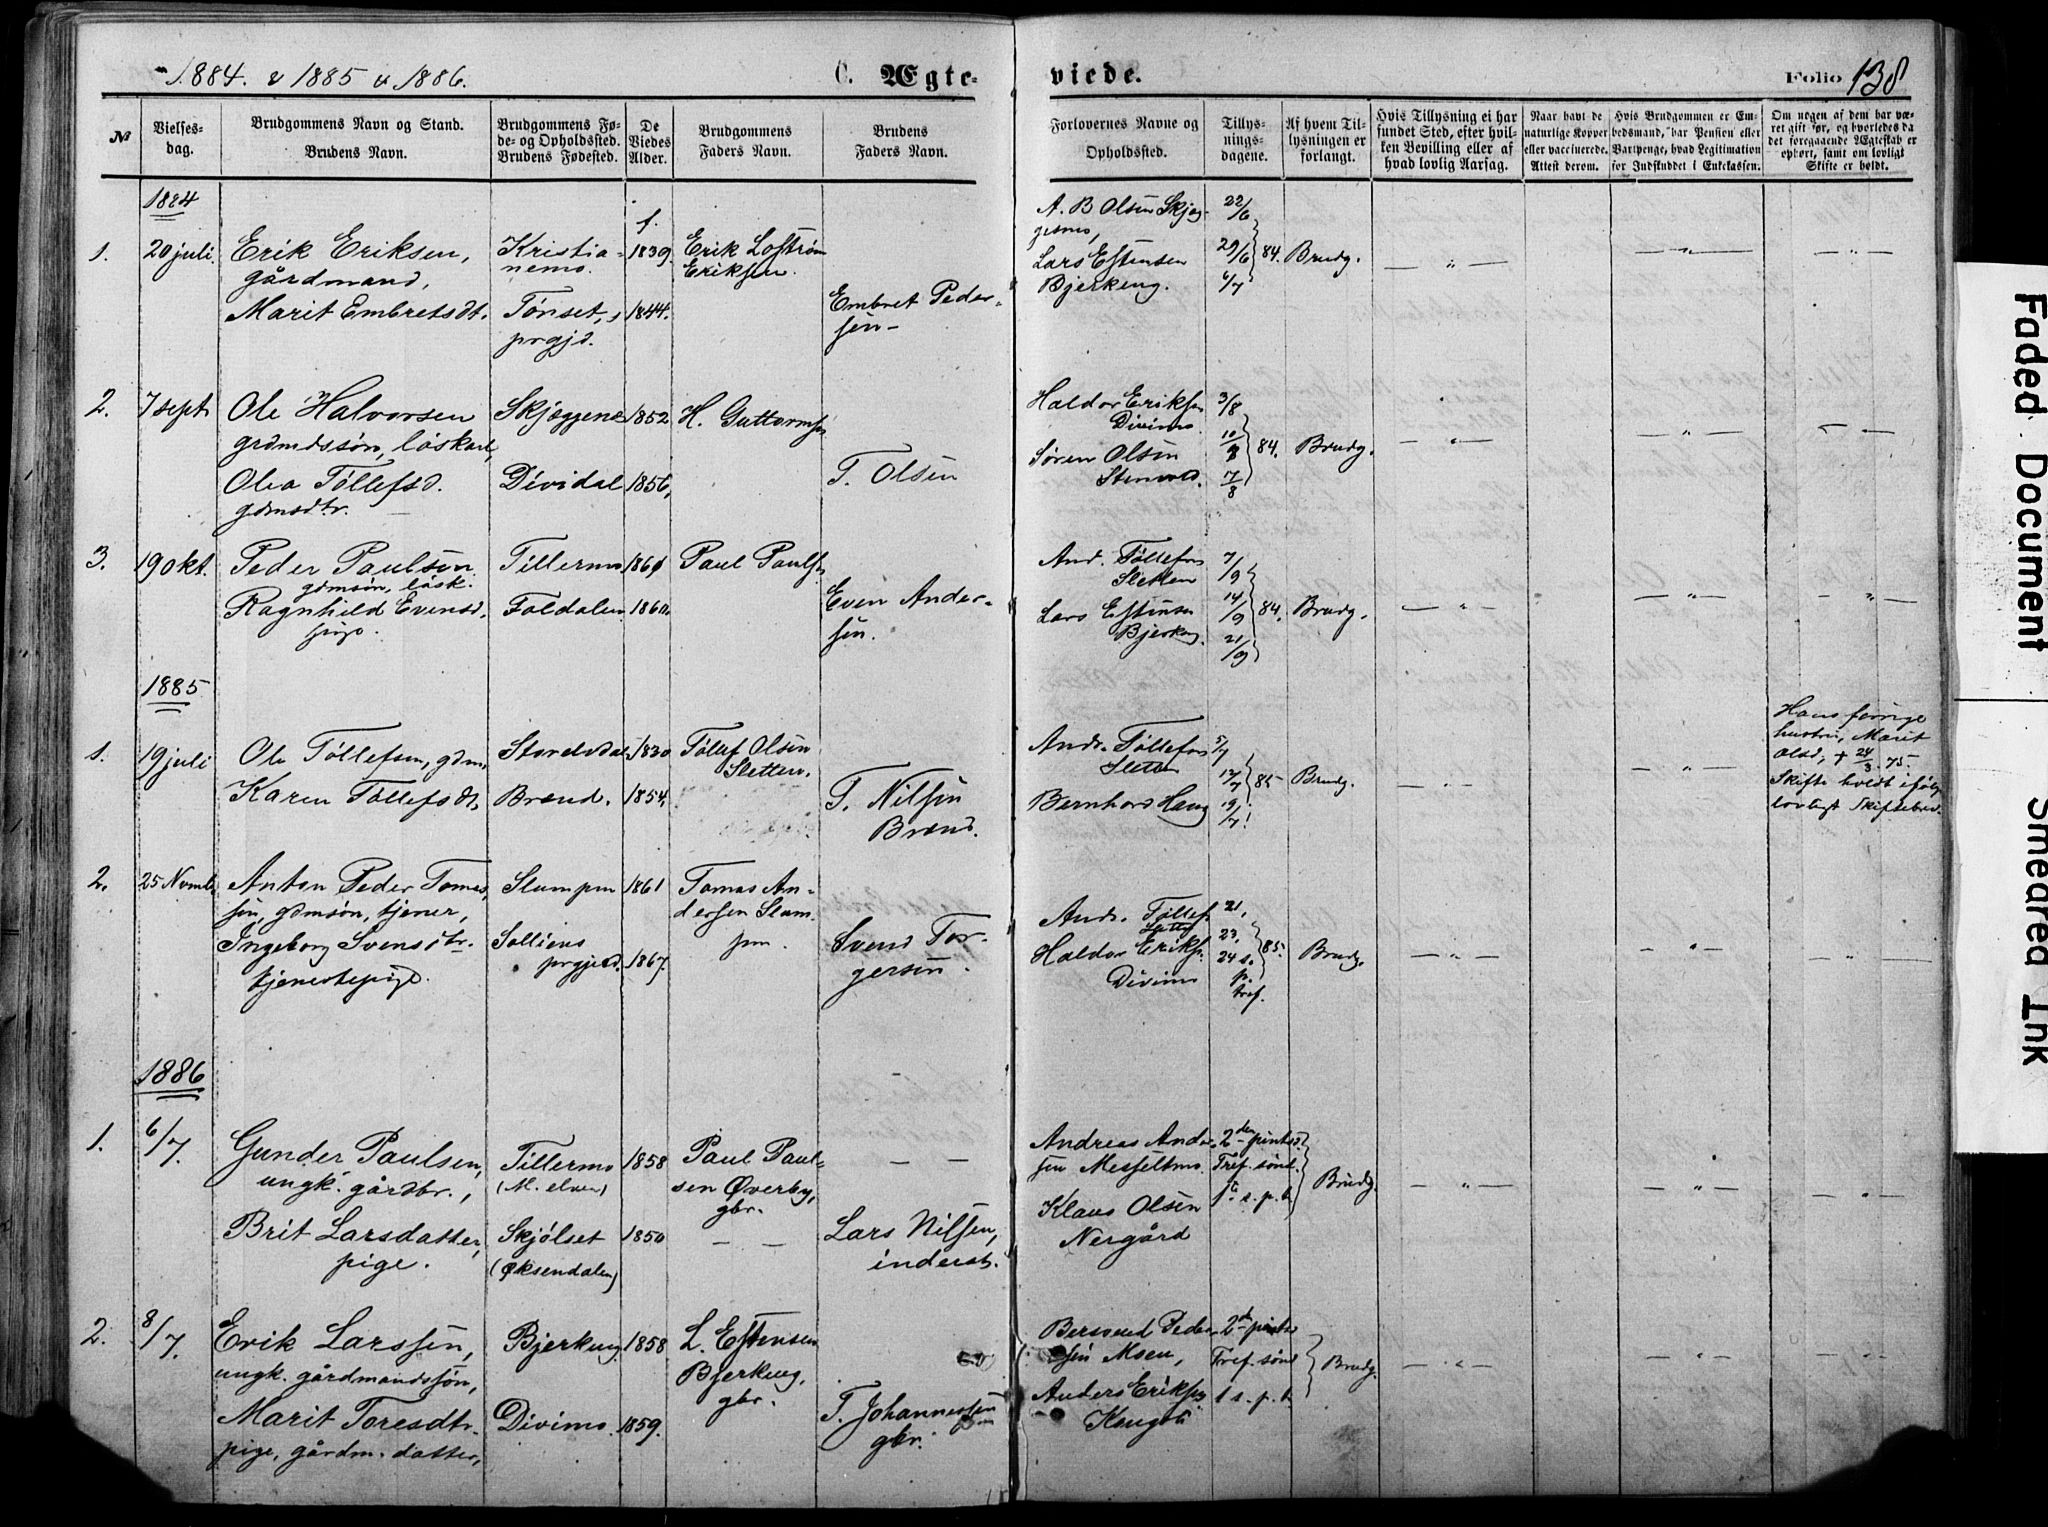 1884. & 1885 & 1886.
C. Ægte-
viede.
Folio 138
№
Vielses-
dag.
Brudgommens Navn og Stand.
Brudens Navn.
Brudgommens Fø-
de- og Opholdssted.
Brudens Fødested.
De
Viedes
Alder.
Brudgommens
Faders Navn.
Brudens
Faders Navn.
Forlovernes Navne og
Opholdssted.
Tillys-
nings-
dagene.
Af hvem Til-
lysningen er
forlangt.
Hvis Tillysning ei har
fundet Sted, efter hvil-
ken Bevilling eller af
hvad lovlig Aarsag.
Naar havt de
naturlige Kopper
eller vaccinerede.
Attest derom.
Hvis Brudgommen er Em-
bedsmand, har Pension eller
Vartpenge, hvad Legitimation
for Indskuddet i Enkekassen.
Om nogen af dem har væ-
ret gift før, og hvorledes da
det foregaaende Ægteskab er
ophørt, samt om lovligt
Skifte er holdt.
1884
1.
20 juli.
Erik Eriksen,
gårdmand,
Marit Embretsdt.
Kristia-
nemo.
Tønset,
prgjd.
f.
1839.
1844.
Erik Loftrøm
Eriksen.
Embret Peder-
sen
A. B Olsen Skjæg-
gesmo,
Lars Estensen
Bjerkeng.
22/6
29/6
6/7
84.
Brudg.
2.
7 sept
Ole Halvorsen
grdmdssøn, løskarl,
Olea Tøllefsd.
gdmsdtr.
Skjæggenes
Dividal
1852
1856,
H. Guttormsen
T. Olsen
Haldor Eriksen
Divimo.
Søren Olsen
Stenvold.
3/8
10/8
7/8
84.
Brudg.
3.
19 Okt.
Peder Paulsen
gdmsøn, løsk.
Ragnhild Evensd.
pige.
Tillermo
Foldalen
1861
1860.
Paul Paulsen
Even Ander-
sen.
And. Tøllefsen
Sletten
Lars Estensen
Bjerkeng.
7/9
14/9
21/9
84.
Brudg.
1885
1.
19 juli
Ole Tøllefsen, gdm.
Karen Tøllefsdt.
Storelvdal
Brænd.
1830
1854.
Tøllef Olsen
Sletten.
T. Nilsen
Brænd.
Andr. Tøllefsen
Sletten
Bernhard Haug
5/7
12/7
19/7
85
Brudg.
Hans forrige
hustru, Marit
Olsd, + 24/3 75.
Skifte holdt ifølge
lovligt Skiftebrev.
2.
25 Novmb.
Anton Peder Tomas-
sen, gdmsøn, tjener,
Ingeborg Svensdtr.
tjenestepige.
Slumpen
Solliens
prgjeld.
1861
1867.
Tomas An-
dersen Slum-
pen.
Svend Tor-
gersen.
Andr. Tøllefs.
Sletten
Haldor Eriks.
Divimo
21,
23,
24 s.
p.
tref.
85.
Brudg.
1886
1.
6/7.
Gunder Paulsen,
ungk. gårdbr.,
Brit Larsdatter,
pige.
Tillermo
(M. elven)
Skjølset
(Øksendalen)
1858
1850
Paul Paul-
sen Øverby,
gbr.
Lars Nilsen,
inderst.
Andreas Ander-
sen Messeltmo.
Klaus Olsen
Nergård
2den pintsd.
Tref. sønd.
1te s. p. t.
Brudg.
2.
8/7.
Erik Larssen,
ungk. gårdmandssøn,
Marit Toresdtr.
pige, gårdm. datter,
Bjerkeng
Divimo.
1858
1859.
L. Estensen
Bjerkeng,
gbr.
T. Johannessen
gbr.
Bersvend Peder-
sen Moen,
Anders Eriksen
2d pintsd
Tref. sønd
1 s. p. t.
Brudg.
Faded Document
Smeared Ink